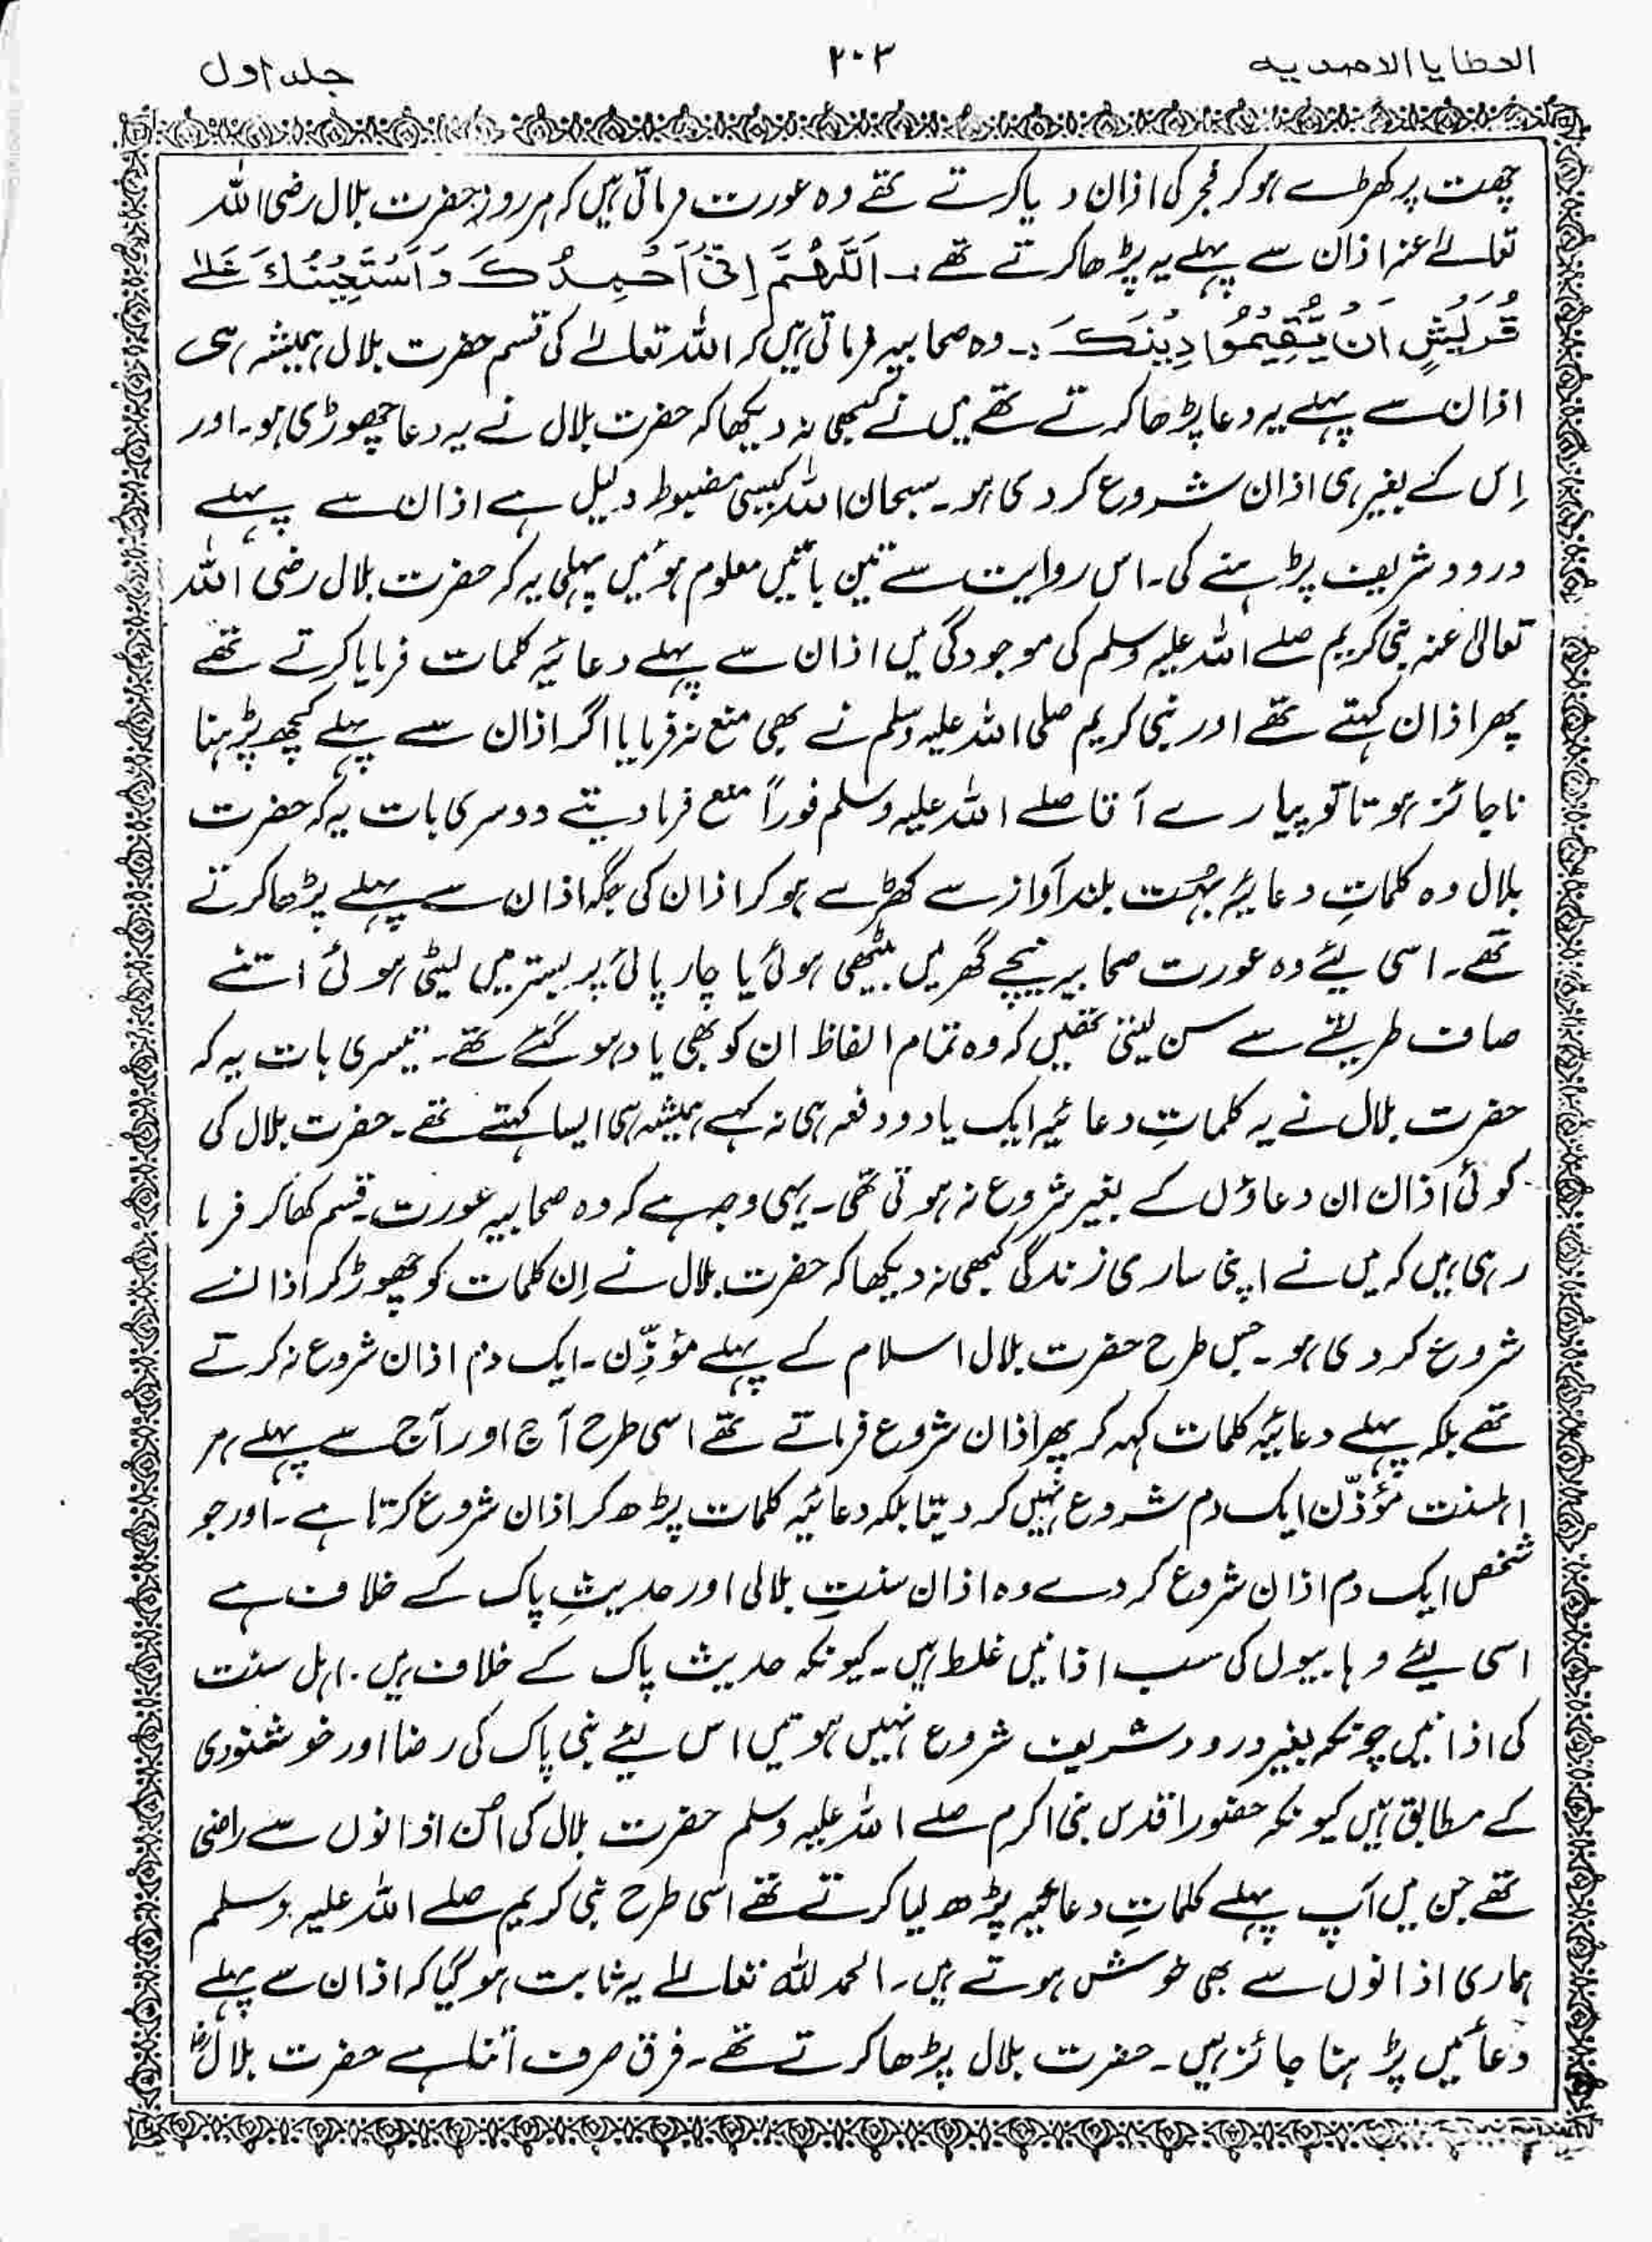 العطایا الاحمدیہ ۲۰۳ جلد اول
چھت پر کھڑے ہو کر فجر کی اذان دیا کرتے تھے وہ عورت فرماتی ہیں کہ ہر روز حضرت بلال رضی اللہ
تعالےٰ عنہ اذان سے پہلے یہ پڑھا کرتے تھے :۔ اَللّٰهُمَّ اِنِّیْ اَحْمِدُکَ وَاَسْتَعِیْنُكَ عَلےٰ
قُرَیْشٍ اَنْ یُّقِیْمُوْا دِیْنَکَ :۔ وہ صحابیہ فرماتی ہیں کہ اللہ تعالےٰ کی قسم حضرت بلال ہمیشہ ہی
اذان سے پہلے یہ دعا پڑھا کرتے تھے میں نے کبھی نہ دیکھا کہ حضرت بلال نے یہ دعا چھوڑی ہو۔ اور
اِس کے بغیر ہی اذان شروع کر دی ہو۔ سبحان اللہ کیسی مضبوط دلیل ہے اذان سے پہلے
درود شریف پڑہنے کی۔ اس روایت سے تین باتیں معلوم ہوئیں پہلی یہ کہ حضرت بلال رضی اللہ
تعالیٰ عنہ نبی کریم صلے اللہ علیہ وسلم کی موجودگی میں اذان سے پہلے دعائیہ کلمات فرمایا کرتے تھے
پھر اذان کہتے تھے اور نبی کریم صلی اللہ علیہ وسلم نے بھی منع نہ فرمایا اگر اذان سے پہلے کچھ پڑہنا
ناجائز ہوتا تو پیارے آقا صلے اللہ علیہ وسلم فوراً منع فرما دیتے دوسری بات یہ کہ حضرت
بلال وہ کلماتِ دعائیہ بہُت بلند آواز سے کھڑے ہو کر اذان کی جگہ اذان سے پہلے پڑھا کرتے
تھے۔ اسی لیئے وہ عورت صحابیہ نیچے گھر میں بیٹھی ہوئی یا چارپائی پر بستر میں لیٹی ہوئی اتنے
صاف طریقے سے سن لیتی تھیں کہ وہ تمام الفاظ ان کو بھی یاد ہو گئے تھے۔ تیسری بات یہ کہ
حضرت بلال نے یہ کلماتِ دعائیہ ایک یا دو دفعہ ہی نہ کہے ہمیشہ ہی ایسا کہتے تھے۔ حضرت بلال کی
کوئی اذان ان دعاؤں کے بغیر شروع نہ ہوتی تھی۔ یہی وجہ ہے کہ وہ صحابیہ عورت قسم کھا کر فرما
رہی ہیں کہ میں نے اپنی ساری زندگی کبھی نہ دیکھا کہ حضرت بلال نے اِن کلمات کو چھوڑ کر اذان
شروع کر دی ہو۔ جس طرح حضرت بلال اسلام کے پہلے مؤذِّن۔ ایک دم اذان شروع نہ کرتے
تھے بلکہ پہلے دعائیہ کلمات کہہ کر پھر اذان شروع فرماتے تھے اسی طرح آج اور آج سے پہلے ہر
اہلسنت مؤذّن ایک دم شروع نہیں کر دیتا بلکہ دعائیہ کلمات پڑھ کر اذان شروع کرتا ہے۔ اور جو
شخص ایک دم اذان شروع کر دے وہ اذان سنتِ بلالی اور حدیثِ پاک کے خلاف ہے
اسی لیئے وہابیوں کی سب اذانیں غلط ہیں۔ کیونکہ حدیث پاک کے خلاف ہیں۔ اہل سنت
کی اذانیں چونکہ بغیر درود شریف شروع نہیں ہوتیں اس لیئے نبی پاک کی رضا اور خوشنودی
کے مطابق ہیں کیونکہ حضور اقدس نبی اکرم صلے اللہ علیہ وسلم حضرت بلال کی اُن اذانوں سے راضی
تھے جن میں آپ پہلے کلماتِ دعائیہ پڑھ لیا کرتے تھے اسی طرح نبی کریم صلے اللہ علیہ وسلم
ہماری اذانوں سے بھی خوش ہوتے ہیں۔ الحمد للہ تعالےٰ یہ ثابت ہو گیا کہ اذان سے پہلے
دعائیں پڑہنا جائز ہیں۔ حضرت بلال پڑھا کرتے تھے۔ فرق صرف اتنا ہے حضرت بلالؓ